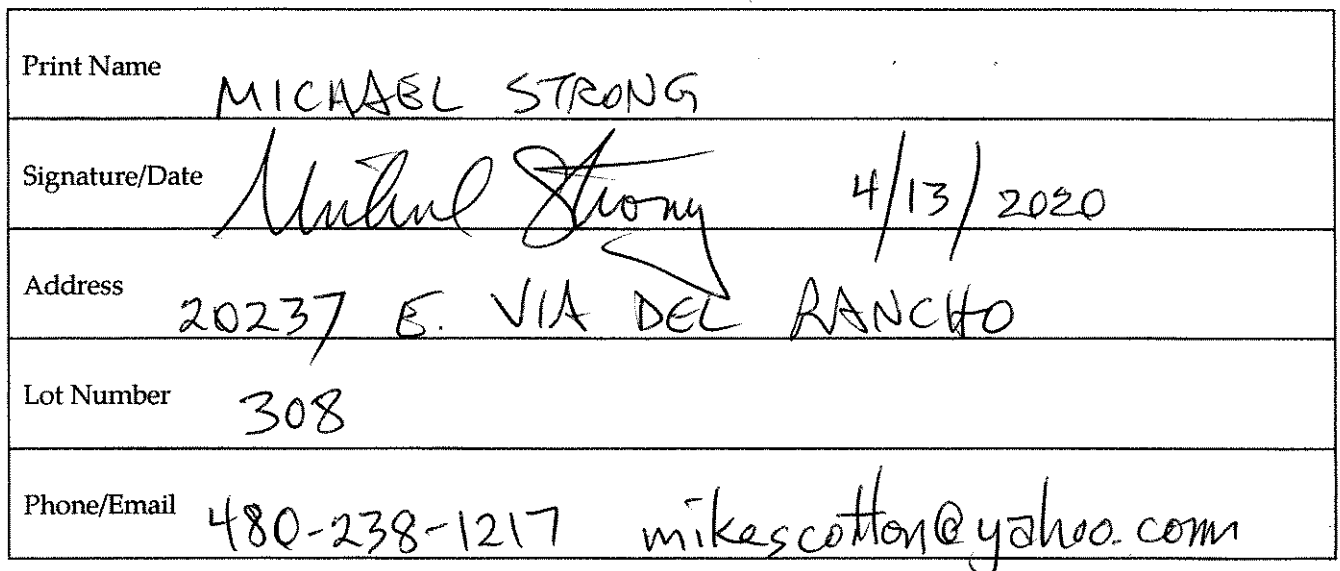 Print Name MICHAEL STRONG
Signature/Date Michael Strong 4/13/2020
Address 20237 E. VIA DEL RANCHO
Lot Number 308
Phone/Email 480-238-1217 mikescotton@yahoo.com